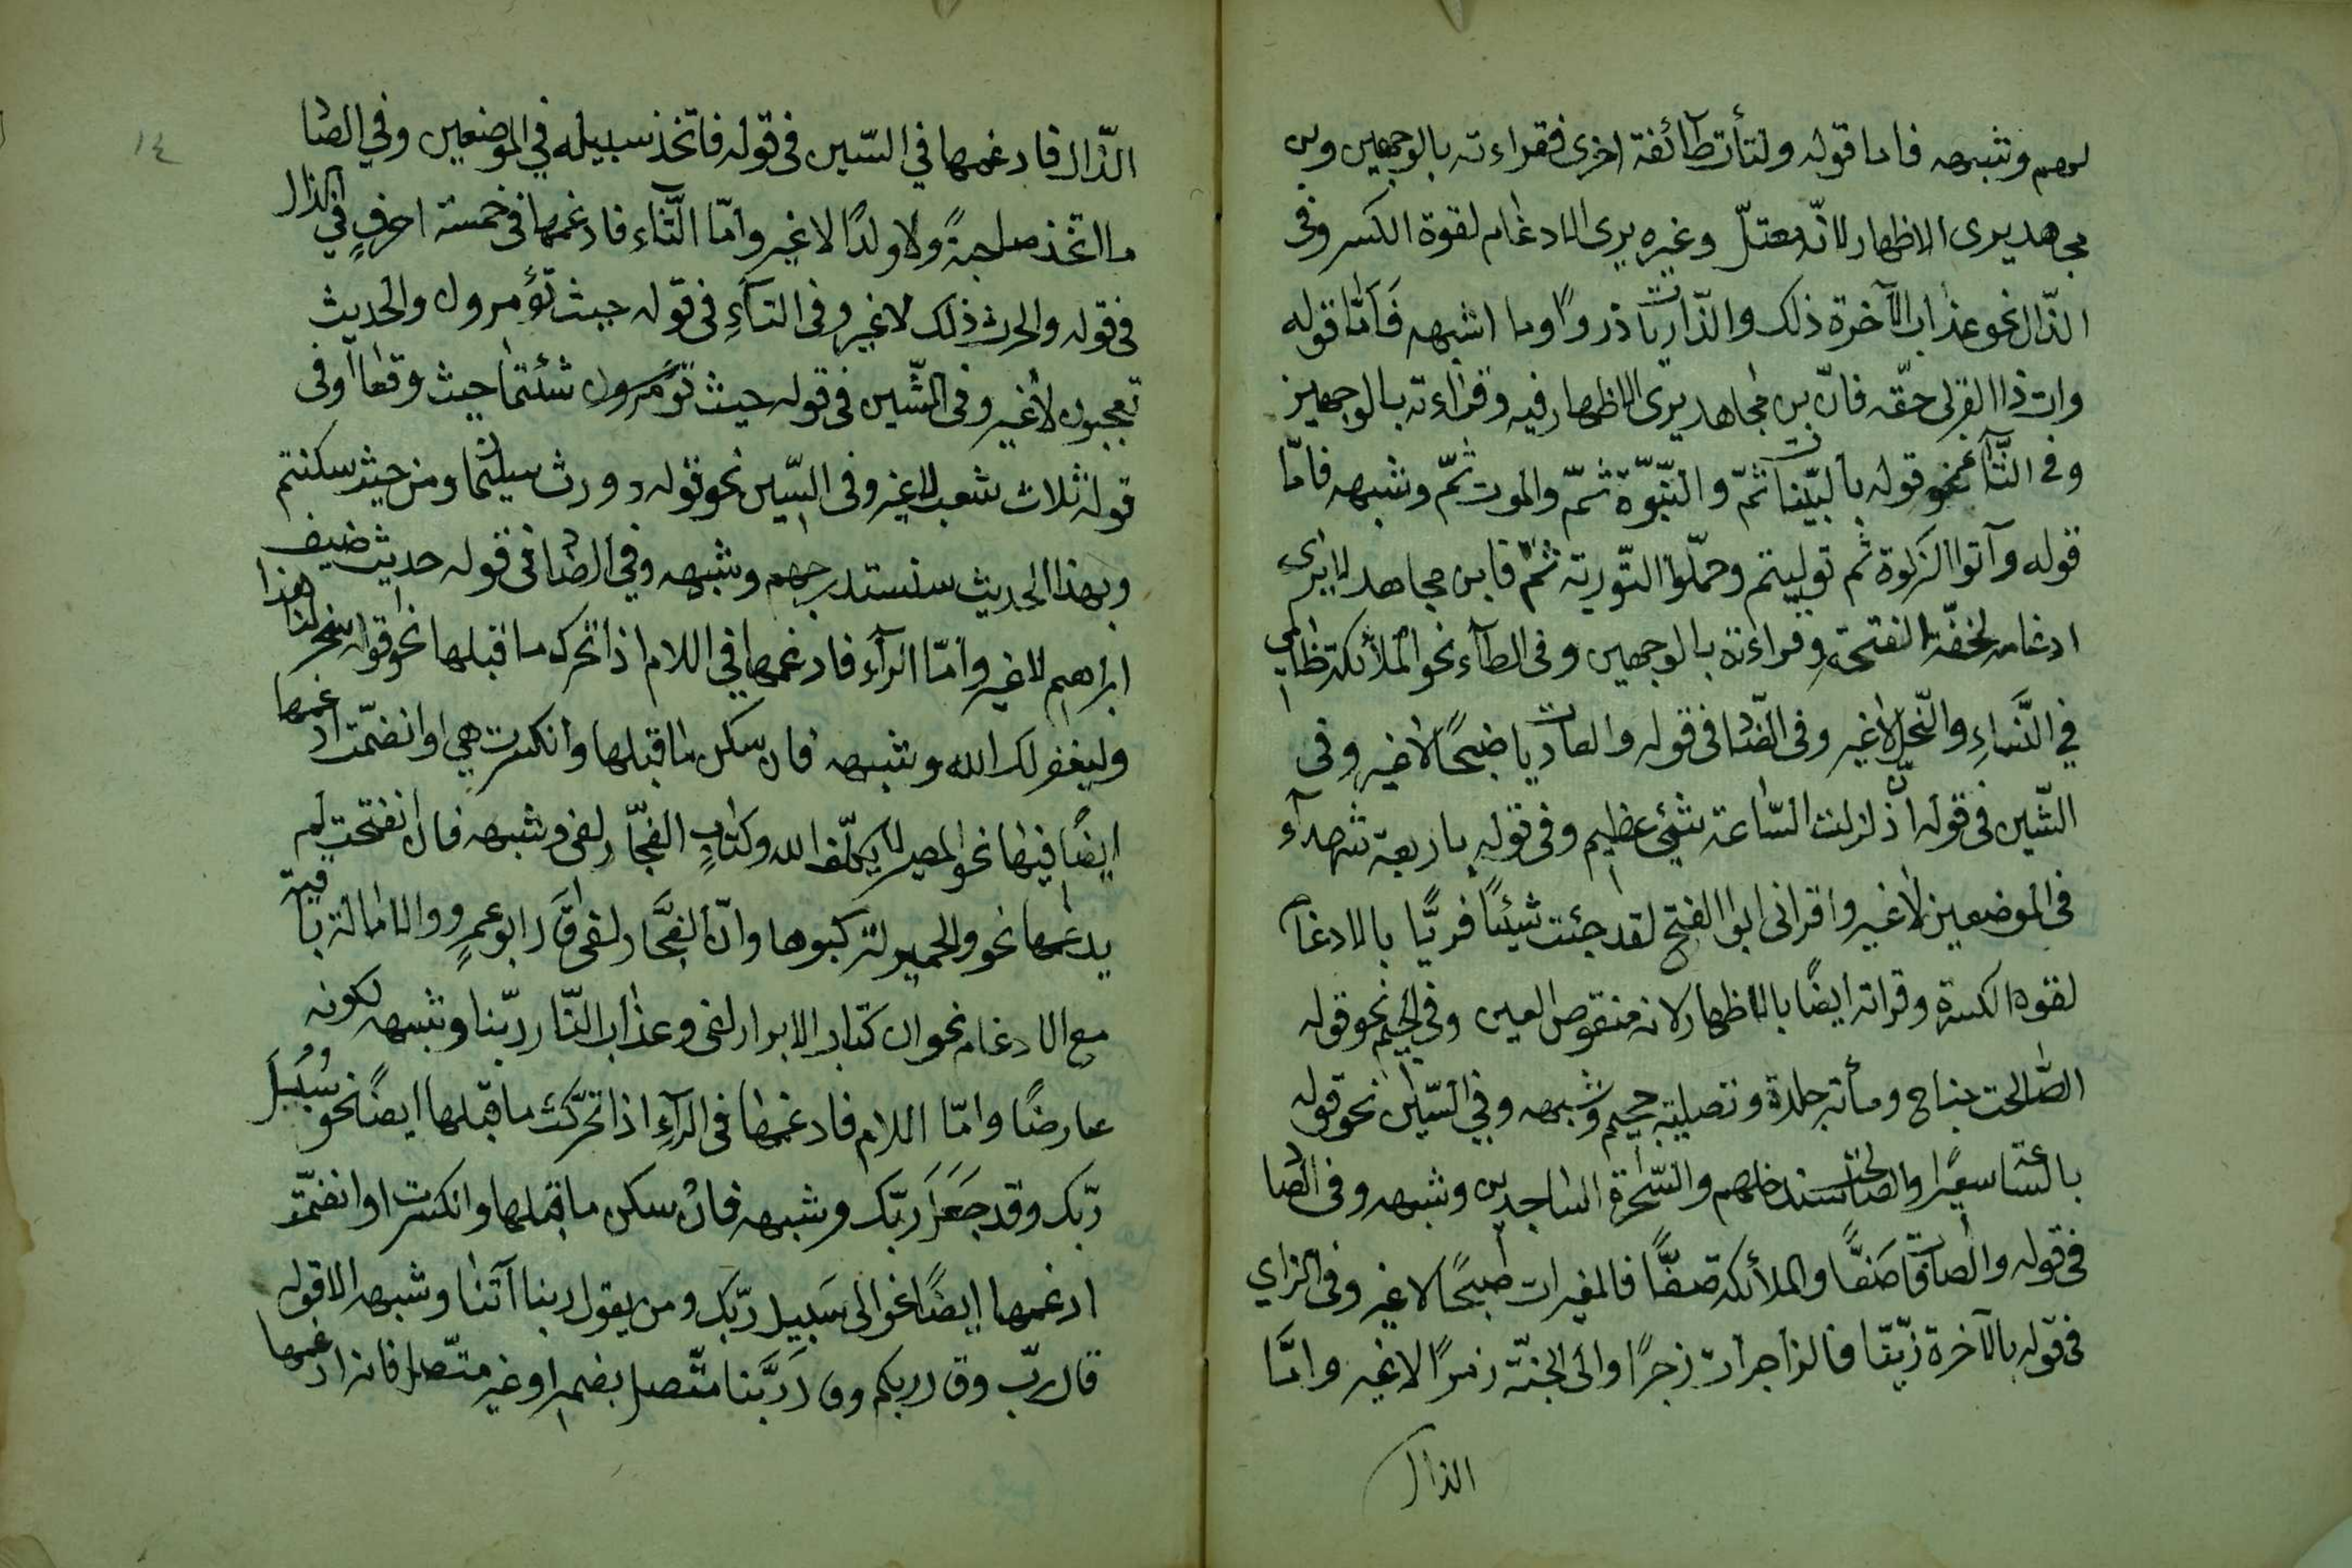 لهم وشبهه فاما قوله ولتأت طآئفة اخرى فقراءته بالوجهين وبن
مجاهد يرى الاظهار لانّه معتلّ وغيره يرى الادغام لقوة الكسر وفى
الذّال نحو عذاب الآخرة ذلك والذّاريات ذروًا وما اشبهه فَاَمَّا قوله
وات ذا القربى حقّه فانّ بن مجاهد يرى الاظهار فيه وقراءته بالوجهين
وفى الثّآء نحو قوله بالبيّنات ثمّ والنّبوّة ثمّ والموت ثمّ وشبهه فامّا
قوله وآتوا الزكوة ثم توليتم وحمّلوا التّورية ثمّ فابن مجاهد لا يرى
ادغامه لخفّة الفتحة وقراءته بالوجهين وفى الطآء نحو الملائكة ظالمي
في النّساءِ والنّحل لاغير وفى الضّاد فى قوله والعاديات ضبحًا لاغير وفى
الشّين فى قوله انّ زلزلت السّاعة شيئ عظيم وفى قوله باربعة شهدآء
فى الموضعين لاغير واقرانى ابو الفتح لقد جئت شيئًا فريًّا بالادغام
لقوة الكسرة وقراته ايضًا بالاظهار لانه منقوص العين وفى الجيم نحو قوله
الصّالحت جناح ومأئة جلدة وتصلية جحيم وشبهه وفي السّين نحو قوله
بالسّاعة سعيرًا والصالحت سندخلهم والسّحرة الساجدين وشبهه وفى الصاد
فى قوله والصافات صَفًّا والملائكة صفًّا فالمغيرات صبحًا لاغير وفى الزاي
فى قوله بالآخرة زيّنّا فالزاجرات زجرًا والى الجنّة زمرًا لاغير وامّا
الذال
١٤
الذّال فادغمها في السّين فى قوله فاتخذ سبيله في الموضعين وفي الصاد
ما اتخذ صاحبةً ولا ولدًا لاغير وامّا الثّاء فادغمها فى خمسة احرفٍ في الذال
فى قوله والحرث ذلك لاغير وفى التآءِ فى قوله حيث تؤمرون والحديث
تعجبون لاغير وفى الشّين فى قوله حيث تؤمرون شئتما حيث وقعا وفى
قوله ثلاث شعب لاغير وفى السّين نحو قوله وورث سليمان ومن حيث سكنتم
وبهذا الحديث سنستدرجهم وشبهه وفي الضاد فى قوله حديث ضيف
ابراهيم لاغير وامّا الرآء فادغمها في اللام اذا تحرك ما قبلها نحو قوله سخر لنا هذا
وليغفر لك الله وشبهه فان سكن ما قبلها وانكسرت هي او انضمّت ادغمها
ايضًا فيها نحو المصير لا يكلّف الله وكتاب الفجّار لفى وشبهه فان انفتحت لم
يدغمها نحو والحمير لتركبوها وانّ الفجّار لفى قَرَا ابو عمرٍو والامالة باقية
مع الادغام نحو ان كتاب الابرار لفى وعذاب النّار ربّنا وشبهه لكونه
عارضًا وامّا اللام فادغمها فى الرآءِ اذا تحرّكت ما قبلها ايضًا نحو سُبُلَ
ربّك وقد جَعَلَ ربّك وشبهه فان سكن ما قبلها وانكسرت او انضمّت
ادغمها ايضًا نحو الى سَبيل ربّك ومن يقول ربنا آتنا وشبهه الا قوله
قال ربّ وقال ربكم وقال رَبَّنا متّصل بضمير او غير متّصل فانه ادغمها